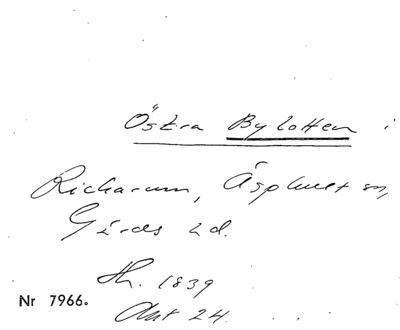 Östra Bylotten i
Richarum, Äsphult sn,
Gärds hd.
Th. 1839
Nr 7966.
Akt 24